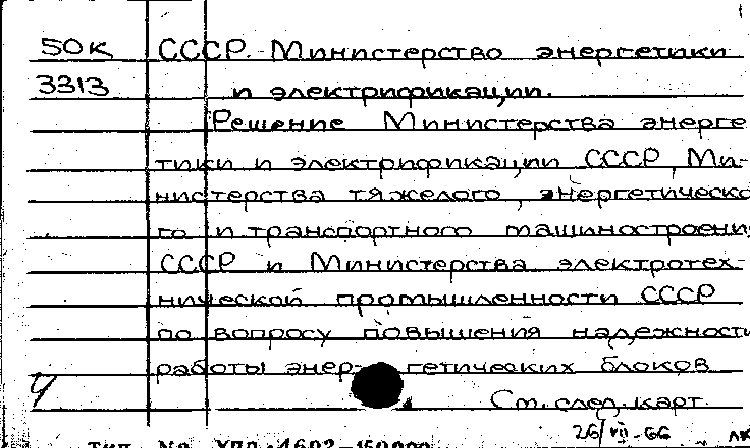 50К СССР. Министерство энергетики
3313 и электрификации.
Решение Министерства энерге
тики и электрификации СССР, Ми-
нистерства тяжелого, энергетическо
го и транспортного машиностроени
СССР и Министерства электротех-
нической промышленности СССР
по вопросу повышения надежности
работы энергетических блоков
См. след. карт.
26/VII-66